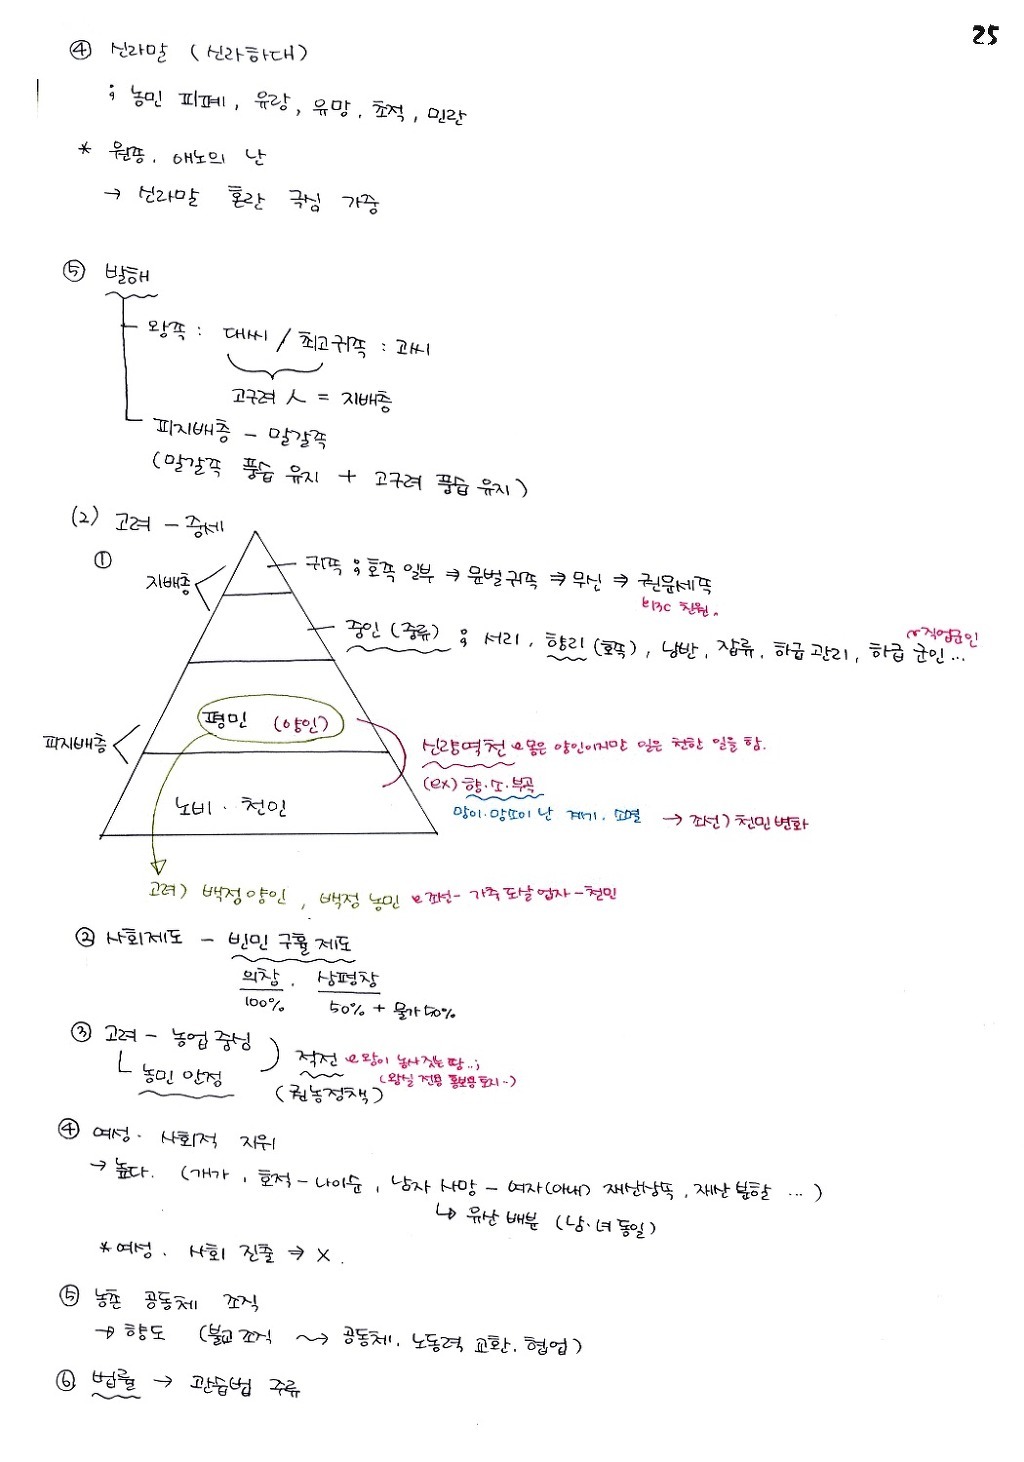 25
④ 신라말 (신라하대)
; 농민 피폐, 유랑, 유망, 초적, 민란
* 원종. 애노의 난
→ 신라말 혼란 극심 가중
⑤ 발해
왕족 : 대씨 / 최고귀족 : 고씨
고구려 人 = 지배층
피지배층 - 말갈족
(말갈족 풍습 유지 + 고구려 풍습 유지)
(2) 고려 - 중세
①
지배층
귀족 ; 호족 일부 ⇒ 문벌귀족 ⇒ 무신 ⇒ 권문세족
친원.
중인 (중류) ; 서리, 향리 (호족), 남반, 잡류, 하급 관리, 하급 군인...
직업군인
피지배층
평민 (양인)
신량역천 몸은 양인이지만 일은 천한 일을 함.
(ex) 향·소·부곡
노비· 천인
망이·망소이 난 계기. 소멸 → 조선) 천민변화
고려) 백정양인, 백정 농민 조선- 가축 도살 업자-천민
② 사회제도 - 빈민 구휼 제도
의창. 상평창
100% 50% + 물가 50%
③ 고려 - 농업 중심
농민 안정
적전 왕이 농사 짓는 땅..;
(왕실 전용 홍보용 토지..)
(권농정책)
④ 여성. 사회적 지위
→ 높다. (개가, 호적-나이순, 남자 사망 - 여자(아내) 재산상속, 재산 분할 ...)
↳ 유산 배분 (남·녀 동일)
*여성. 사회 진출 ⇒ X.
⑤ 농촌 공동체 조직
→ 향도 (불교 조직 ⇝ 공동체. 노동력 교환. 협업)
⑥ 법률 → 관습법 주류